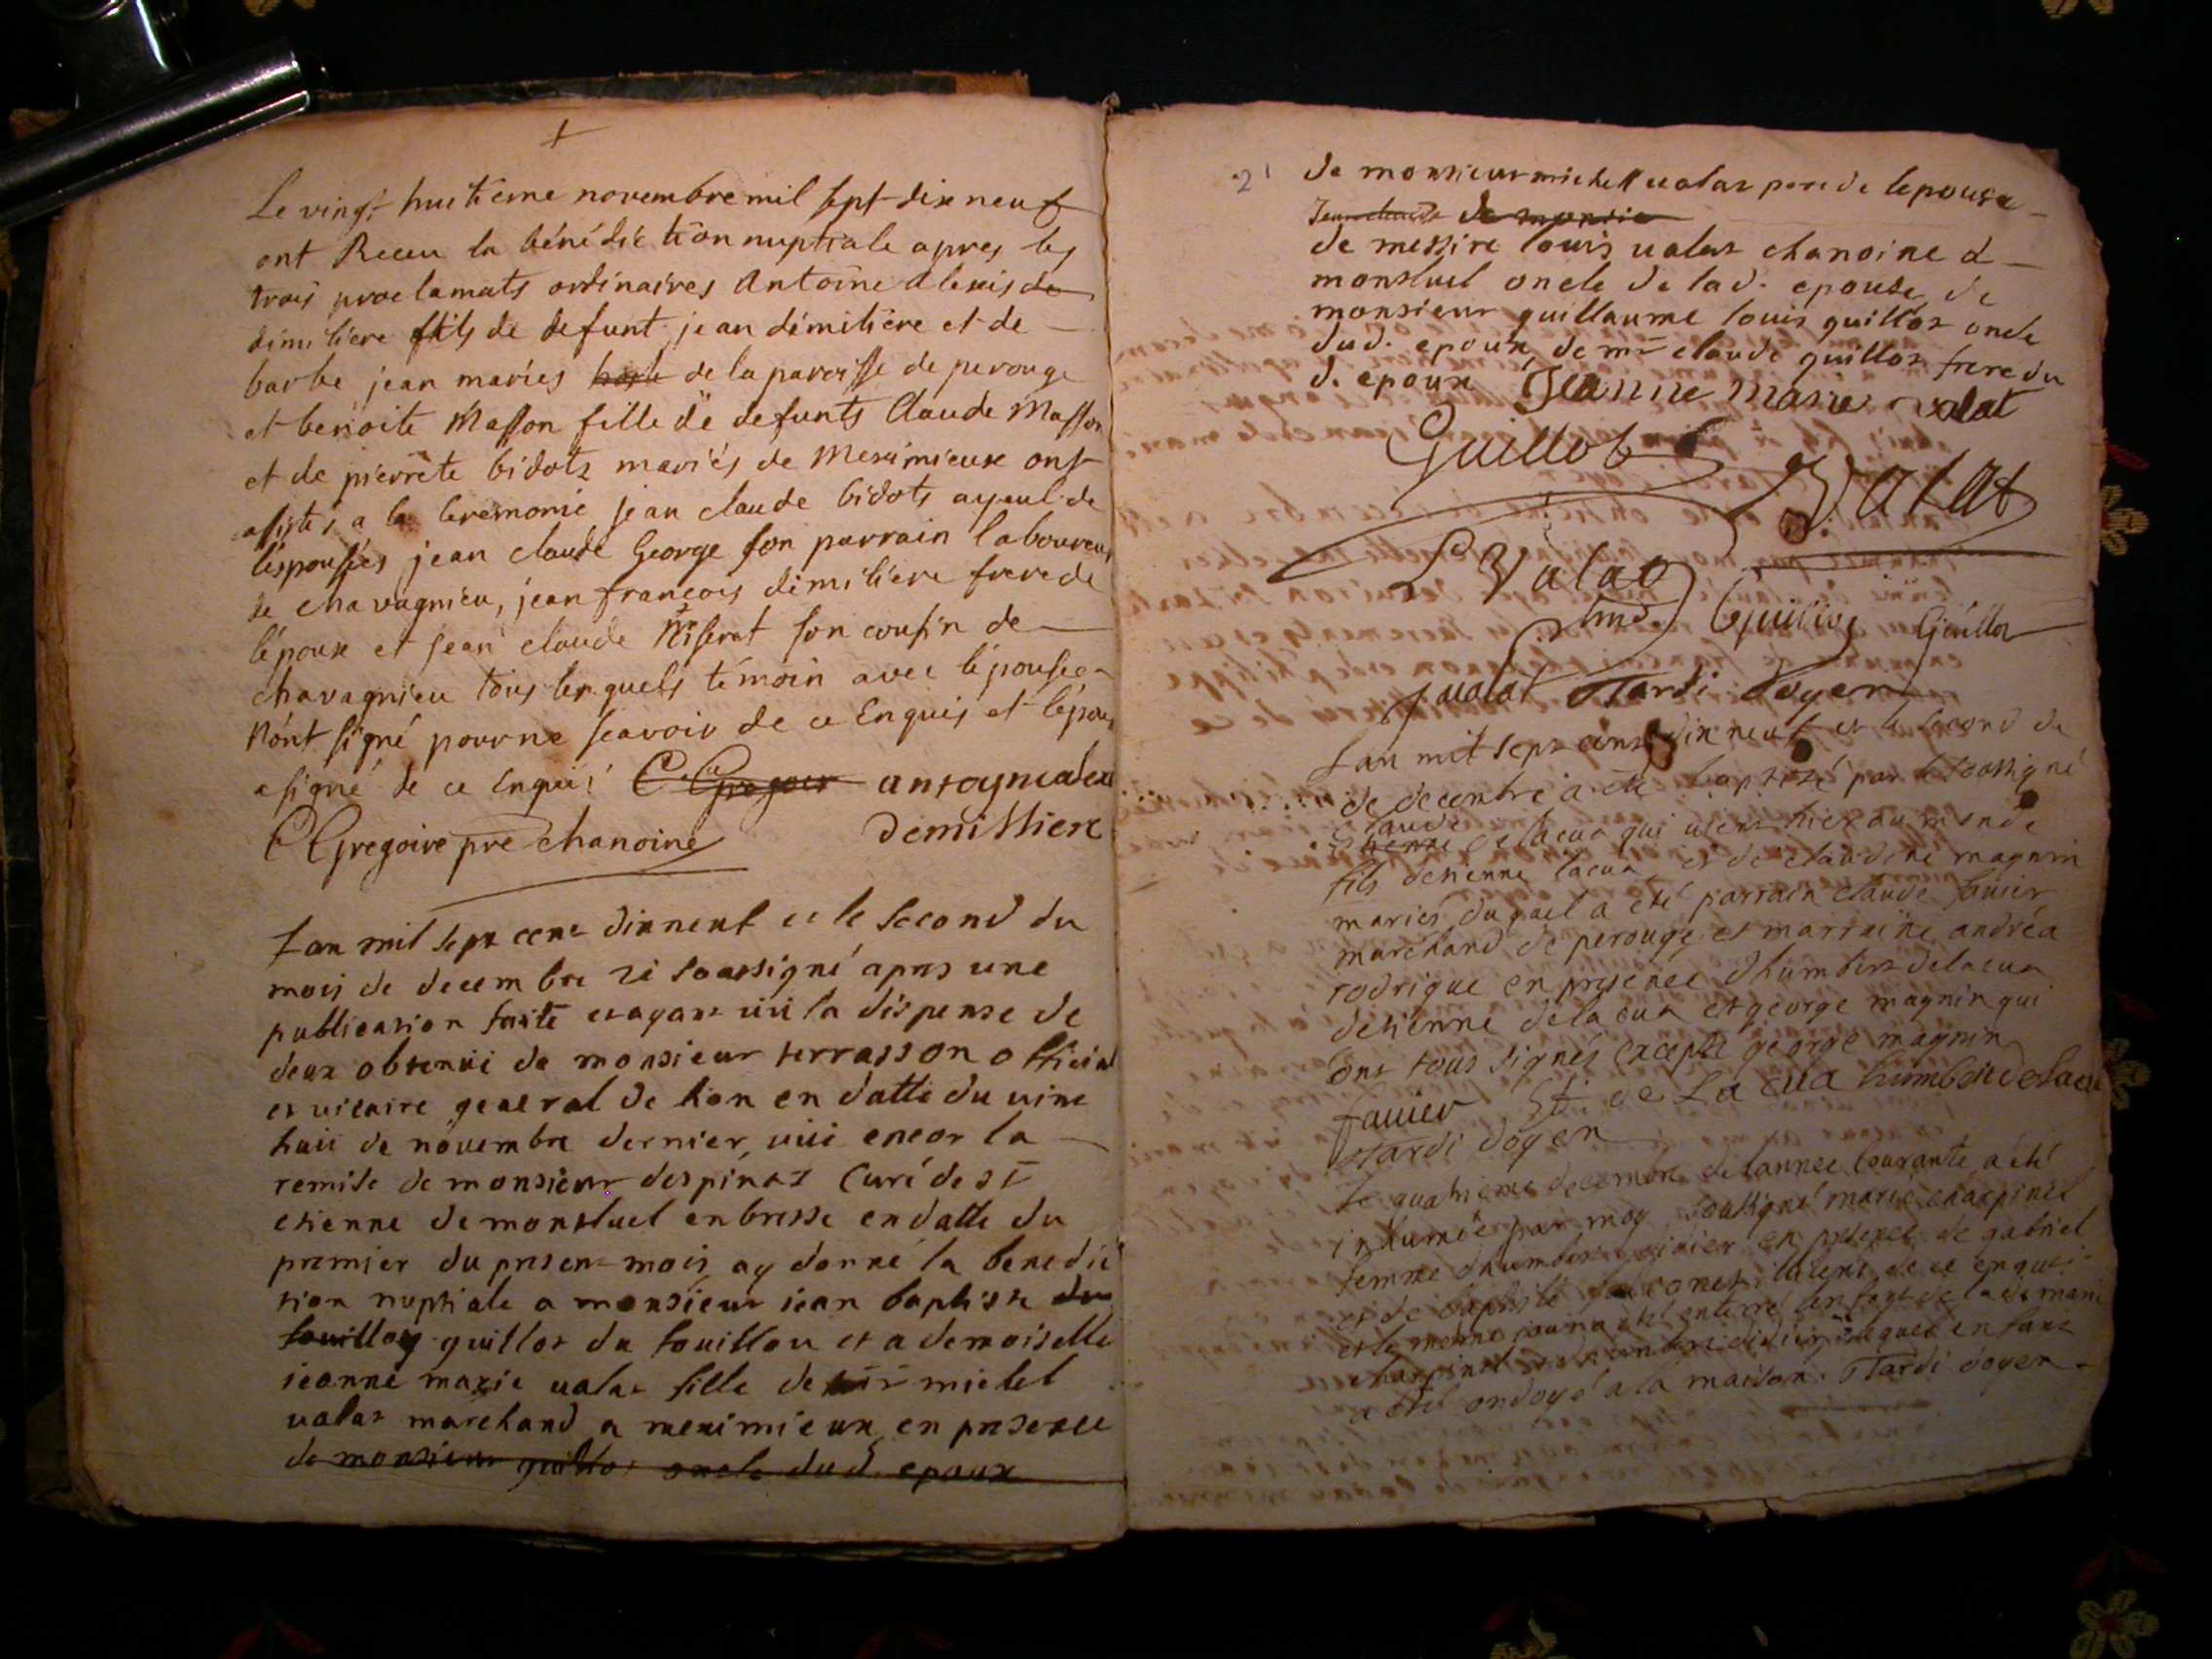 Le vingt huitième novembre mil sept dix neuf
ont Receu la bénédiction nuptiale apres les
trois proclamats ordinaires Antoine Alexis de
dimiliere fils de defunt jean dimilière et de
barbe jean mariés de la paroisse de perouge
et benoite Masson fille de defunts Claude Masson
et de pierrete bidots mariés de Meximieux ont
assistés a la ceremonie jean claude bidots ayeul de
l'espousées jean claude George son parrain laboureur
de chavagnieu, jean francois dimiliere frere de
l'époux et jean claude son cousin de
chavagnieu tous lesquels témoin avec l'épousée
n'ont signé pour ne scavoir de ce Enquis et l'époux
a signé de ce Enquis C Gregoir
C Gregoire pre chanoine demilliere
Lan mil sept cent dixneuf et le second du
mois de decembre ie soussigné apres une
publication faite et ayant vü la dispense de
deux obtenüe de monsieur terrasson official
et vicaire general de lion en datte du vint
huit de novembre dernier, vüe encor la
remise de monsieur despinas Curé de st
etienne de montluel en bresse en datte du
premier du present mois ay donné la benedic
tion nuptiale a monsieur jean baptiste du
fouillou guillot du fouillou et a demoiselle
jeanne marie valat fille de sir michel
valat marchand a meximieux en presence
de monsieur guillot oncle dud. epoux
21 de monsieur michel valat pere de lepouse
Jean claude de monsie
de messire louis valat chanoine d
montluel oncle de lad. epouse de
monsieur guillaume louis guillot oncle
dud. epoux de mr claude guillot frere du
d. epoux Jeanne marie valat
Guillot Valat
Valat
Guillot
valat Tardi doyen
Lan mil sept cent dix neuf et le second de
de decembre a été baptisé par le soussigné
claude
etienne delacua qui vient hier au monde
fils detienne lacua et de claudine magnin
mariés duquel a été parrain claude favier
marchand de perouge et marraine andréa
rodrigue en presence dhumbert delacua
detienne delacua et george magnin qui
ont tous signés excepté george magnin
favier Et de La cua humbert delacua
Tardi doyen
Le quatrieme decembre de lannee courante a été
inhumée par moy soussigné marie charpinet
femme dhumbert didier en presence de gabriel
et de baptiste de ce enquis
et le meme jour a été enterré lenfant de lad. marie
charpinet et dhumbert didier lequel enfant
a été ondoyé a la maison. Tardi doyen